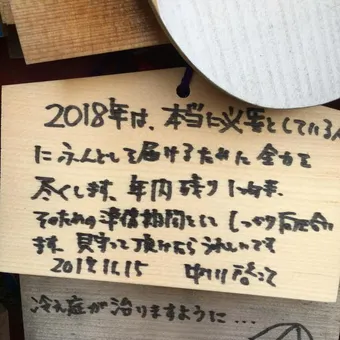 2018年は、本当に必要としている人
にふんとして届けるために全力を
尽くします。年内残り1ヶ月半、
そのための準備期間として しっかり
ます。見守って頂けたらうれしいです
2017.11.15
冷え症が治りますように…